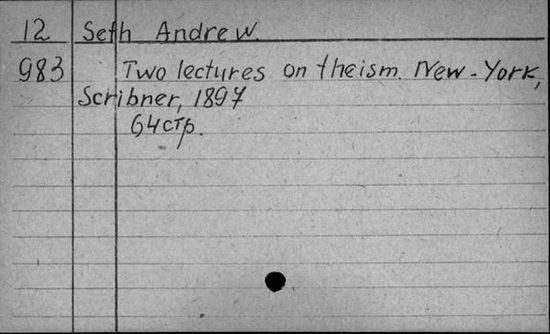 12 Seth Andrew.
983 Two lectures on theism. New-York,
Scribner, 1897
64стр.